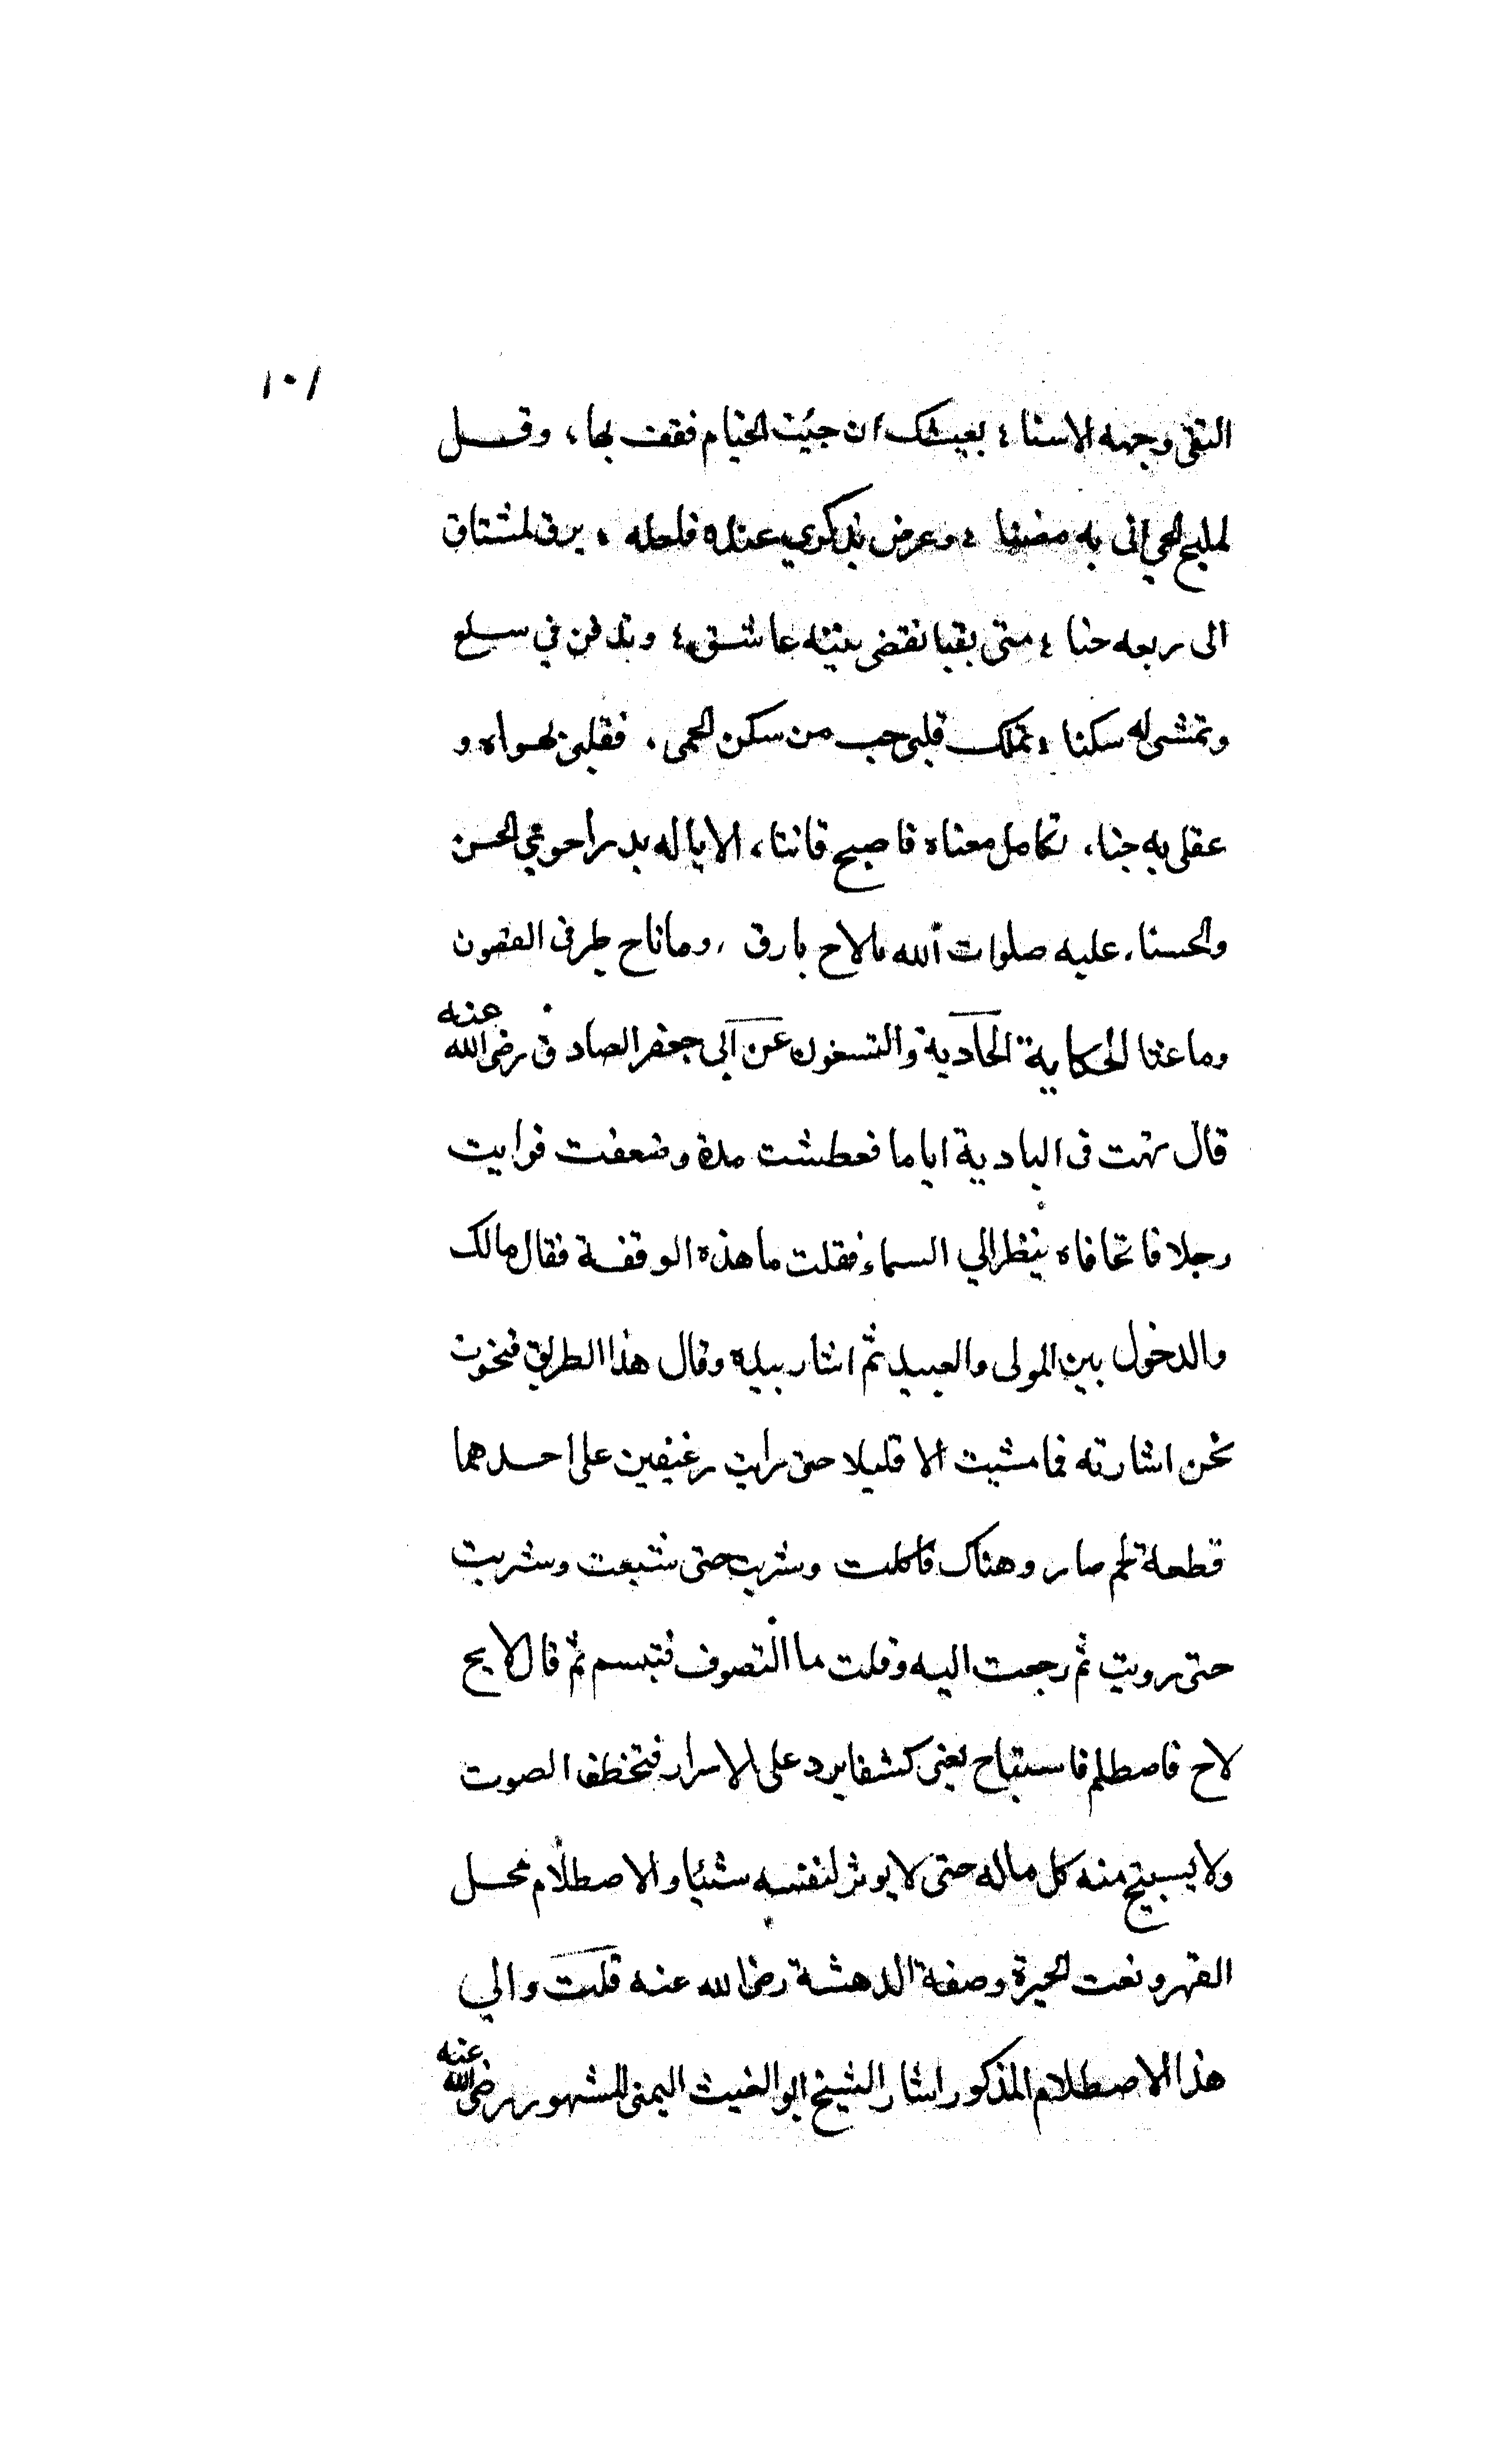 ١٠١
النقى وجهه الاسنا ؛ بعيشك ان جيت الخيام فقف بها ، وقل
لمليح الحي انى به مضنا ؛ وعرض بذكري عنده فلعله ، يرق لمشتاق
الى ربعه حنا ؛ متى بقبا نقضى بغيته عاشق ؛ وتدفن في سلع
وتمشى له سكنا ؛ تملك قلبى حب من سكن الحمى ، فقلبى بهواه و
عقلى به جنا ، تكامل معناه فاصبح فاتنا ، الا ياله بدراحوى الحسن
والحسنا ، عليه صلوات الله مالاح بارق ، وماناح طير فى الغصون
وماغنا الحكاية الحادية والتسعون عن ابي جعفر الصادق رضى الله عنه
قال تهت فى البادية اياما فعطشت مدة وضعفت فرايت
رجلا فاتحا فاه ينظر الي السماء فقلت ما هذه الوقفة فقال مالك
والدخول بين المولى والعبيد ثم اشار بيده وقال هذا الطريق فنحوت
نحن اشارته فما مشيت الا قليلا حتى رايت رغيفين على احدهما
قطعة لحم حار وهناك فاكلت وشربت حتى شبعت وشربت
حتى رويت ثم رجعت اليه وقلت ما التصوف فتبسم ثم قال لايح
لاح فاصطلم فاستباح يعنى كشفا يرد على الاسرار فتخطف الصوت
ولا يسبتح منه كل ماله حتى لا يوثر لنفسه شئيا والاصطلام محل
القهر ونعت الحيرة وصفة الدهشة رضى الله عنه قلت والي
هذا الاصطلام المذكور اشار الشيخ ابو الغيث اليمنى المشهور رضى الله عنه